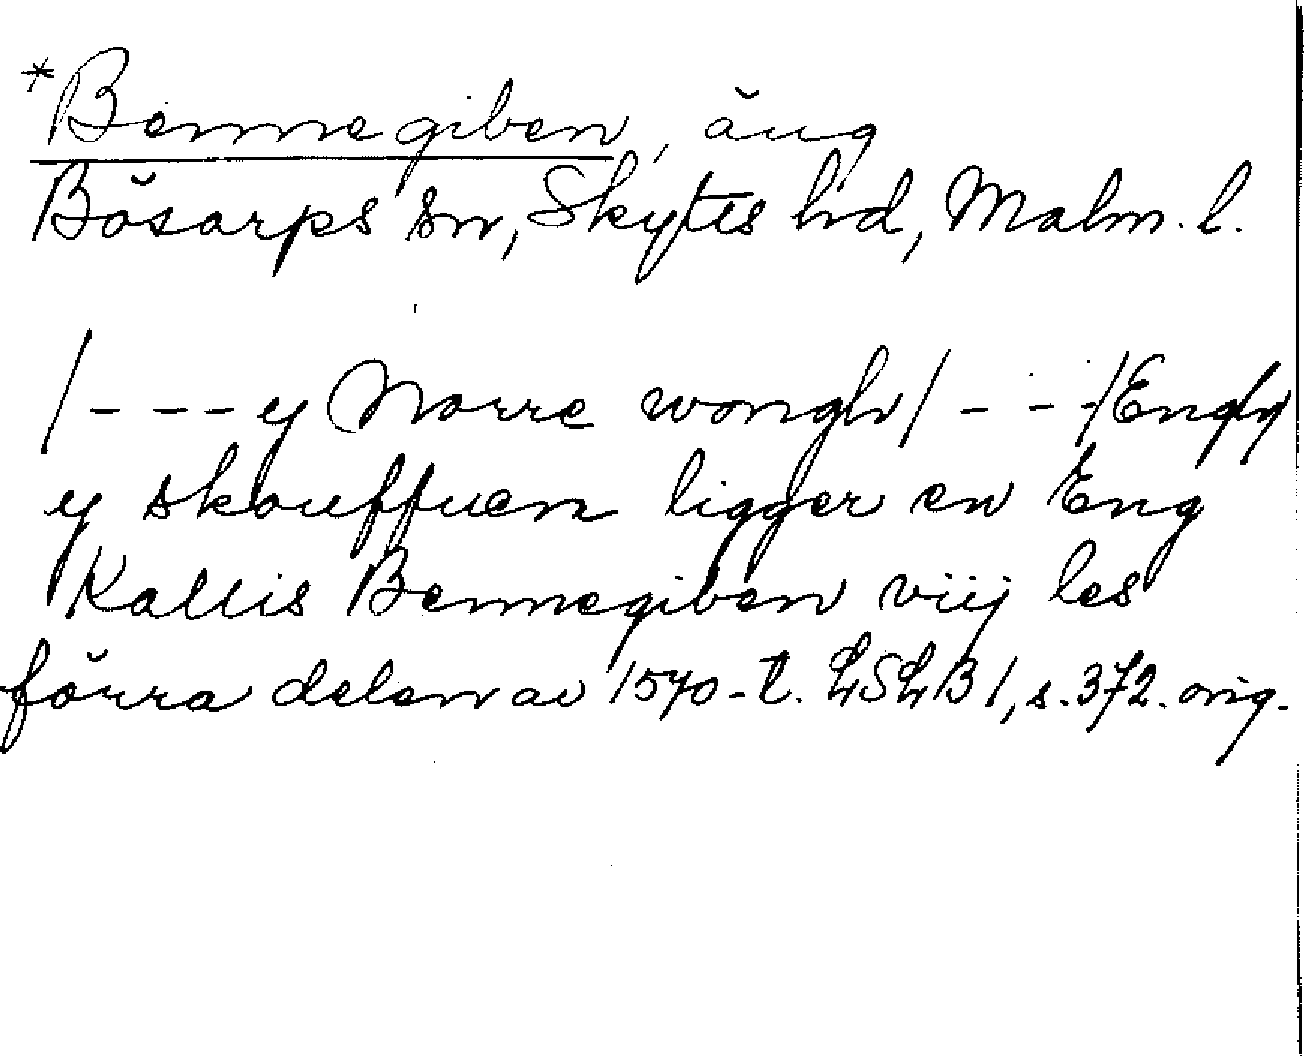 *Bennegiben, äng
Bösarps sn, Skytts hd, Malm. l.
/---y Norre wongh/---/Engh
y skouffuen ligger en Eng
Kallis Bennegiben viij les
förra delen av 1570-t. LSLB 1, s. 372. orig.